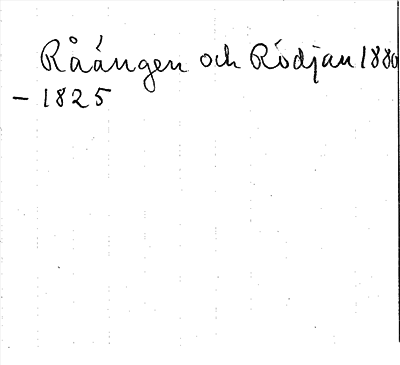 Råängen och Rödjan 1880
– 1825